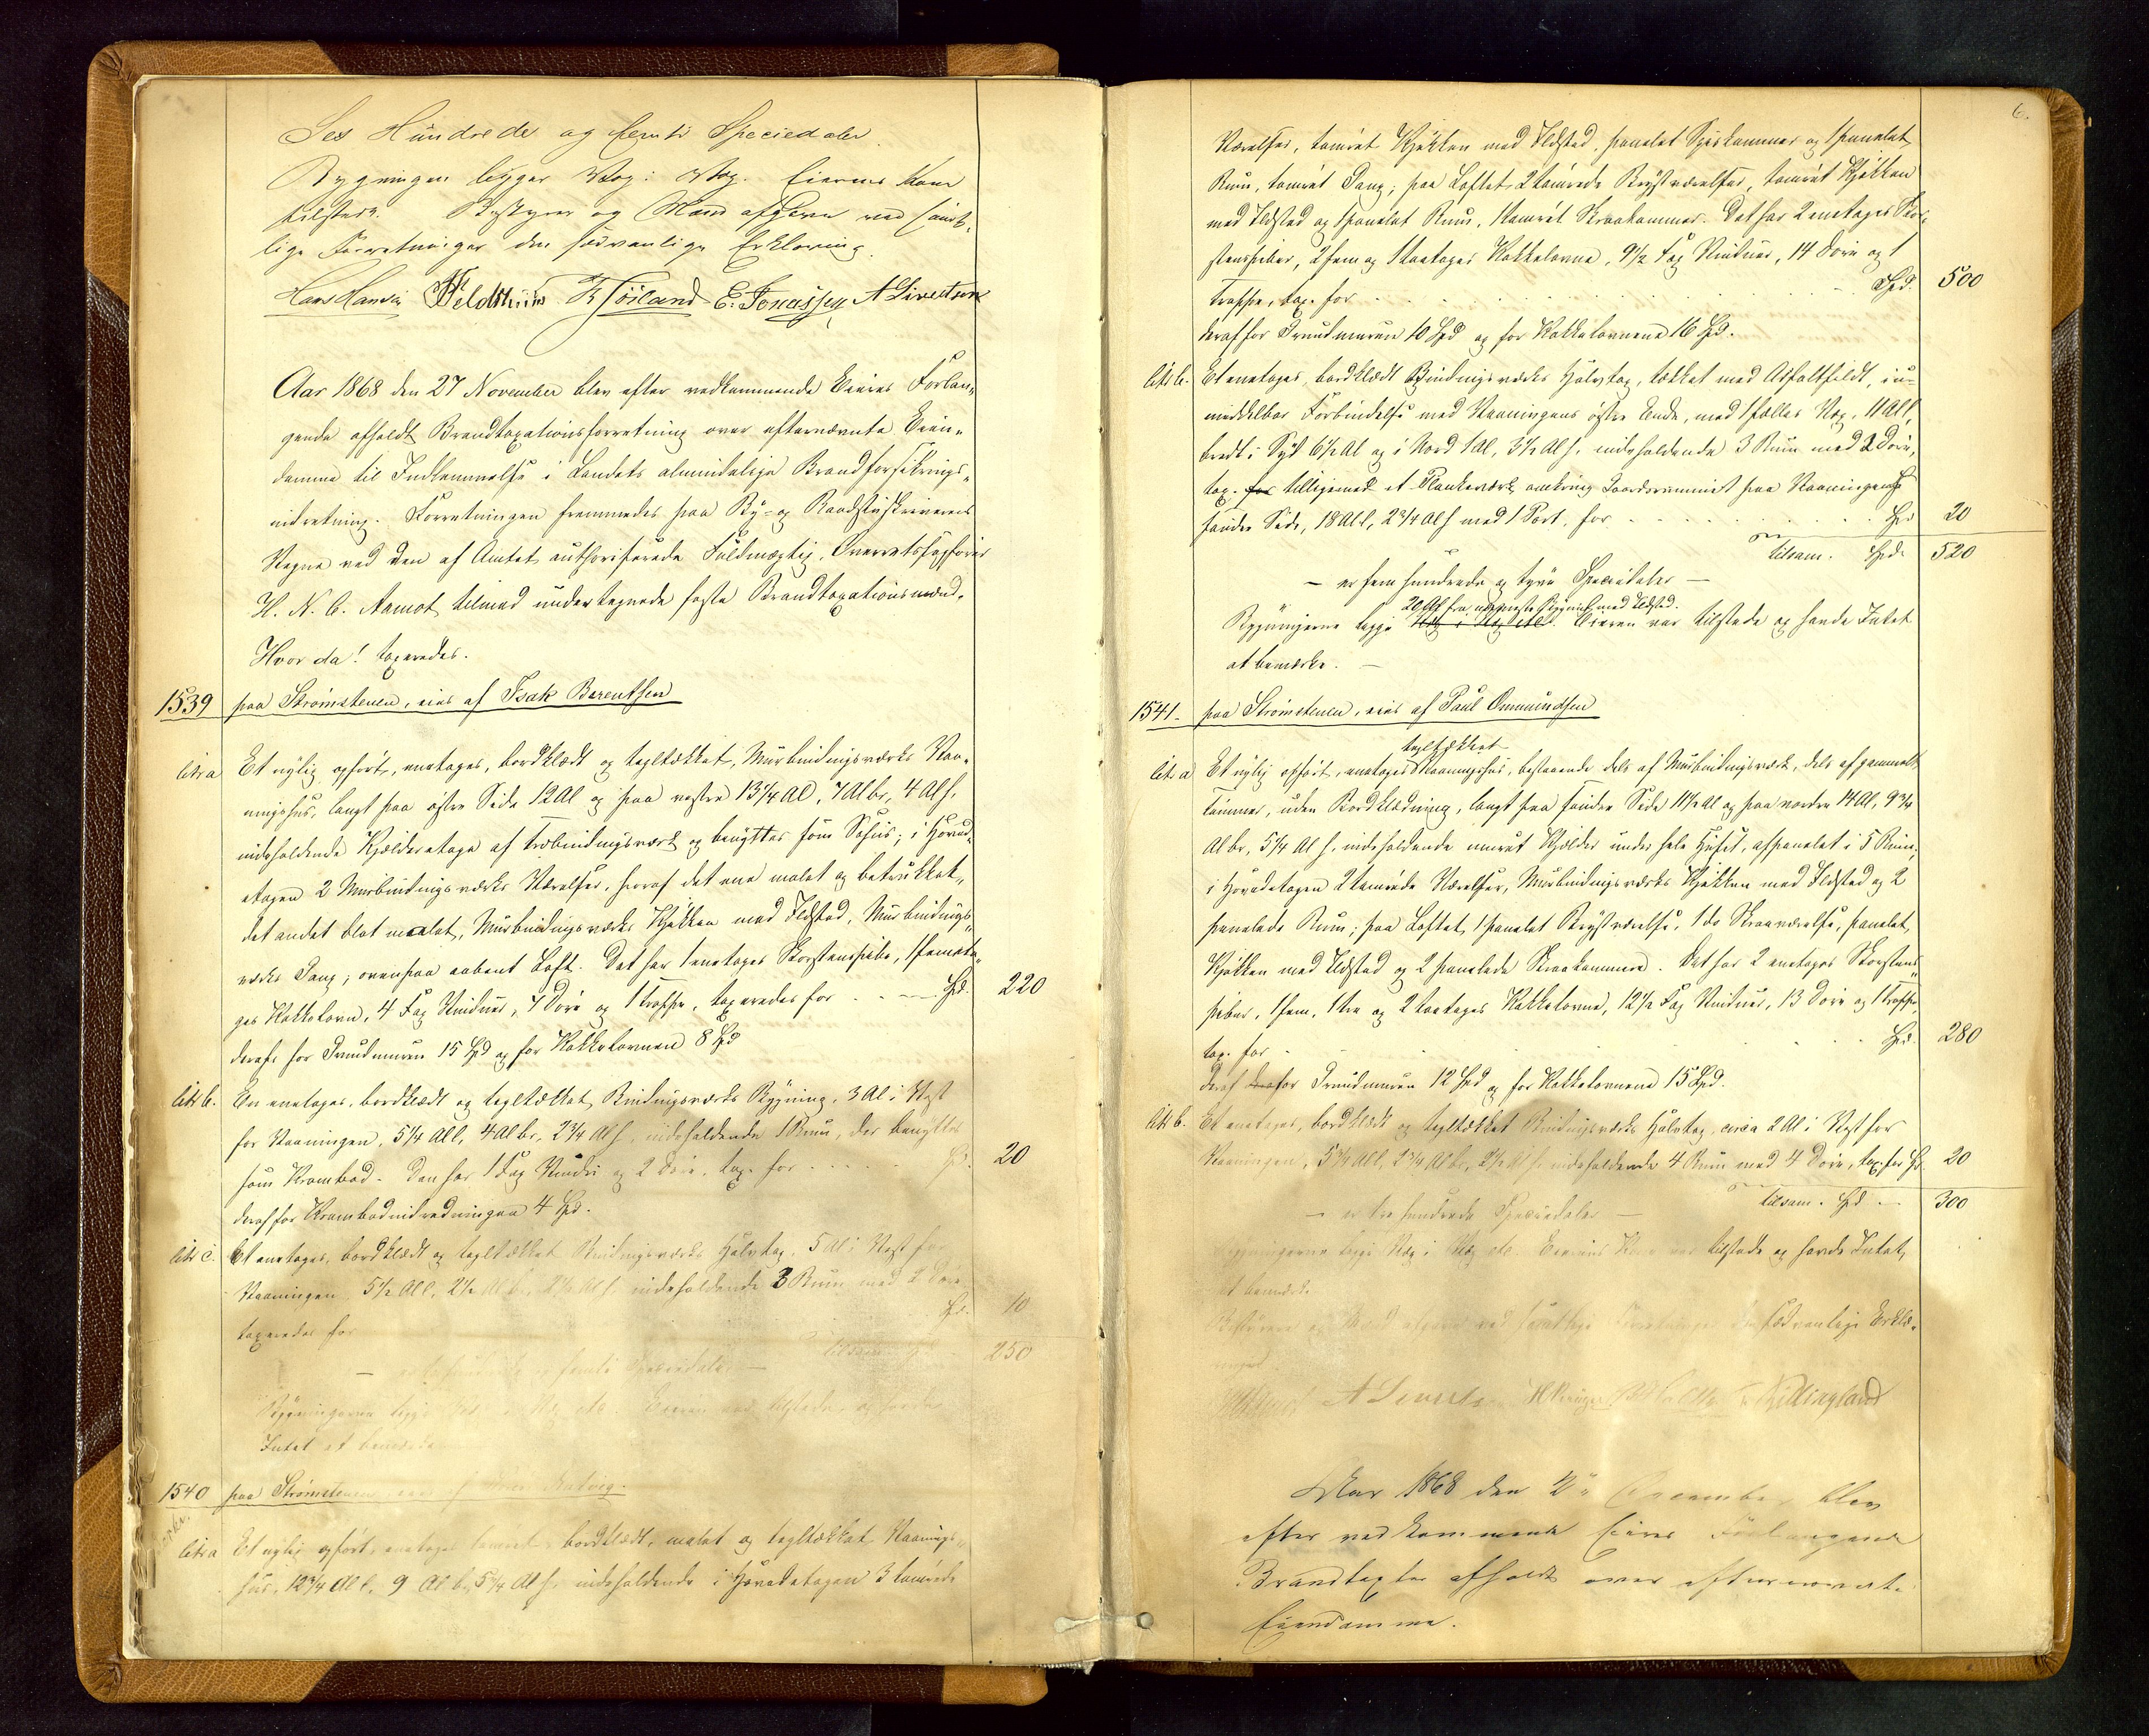 Sex Hundrede og femti Speciedaler
Bygningen ligger Væg i Væg. Eierens Kone
tilstede. Bestyrer og Mænd afgave ved samt-
lige Forretninger den sædvanlige Erklæring.
Hans Hansen Feldthuus Joiland E. Jonassen A Sivertsen
Aar 1868 den 27 November blev efter vedkommende Eieres Forlan-
gende afholdt Brandtaxationsforretning over efternævnte Eien-
domme til Indlemmelse i Landets almindelige Brandforsikrings-
indretning. Forretningen fremmedes paa By- og Raadstuskriverens
Vegne ved den af Amtet authoriserede Fuldmægtig, Overretssagfører
H. N. C. Aamot tilmed undertegnede faste Brandtaxationsmænd.
Hvor da! taxeredes.
1539 paa Strømstenen, eies af Isak Berentsen
litr a Et nylig opført, enetages, bordklædt og tegltækket, Murbindingsværks Vaa-
ningshus, langt paa østre Side 12 Al og paa vestre 13 1/4 Al, 7 Al br, 4 Al h.
indeholdende Kjælderetage af Træbindingsværk og benyttes som Søhus; i Hoved-
etagen 2 Murbindingsværks Værelser, hvoraf det ene malet og betrukket,
det andet blot malet, Murbindingsværks Kjøkken med Ildsted, Murbindings-
værks Gang; ovenpaa aabent Loft. Det har 1 enetages Skorstenspibe, 1 femeta-
ges Kakkelovn, 4 Fag Vinduer, 7 Døre og 1 Trappe, taxeredes for Spd. 220
deraf for Grundmuren 15 Spd og for Kakkelovnen 8 Spd
litr b. En enetages, bordklædt og tegltækket Bindingsværks Bygning, 3 Al i Vest
for Vaaningen, 5 1/4 Al l, 4 Al br, 2 3/4 Al h, indeholdende 1 Rum, der benyttes
som Krambod. Den har 1 Fag Vindu og 2 Døre, tax. for Spd. 20
deraf for Krambodindredningen 4 Spd.
litr c. Et enetages, bordklædt og tegltækket Bindingsværks Halvtag, 5 Al i Vest for
Vaaningen, 5 1/2 Al l, 2 1/2 Al br, 2 1/2 Al h, indeholdende 3 Rum med 2 Døre
taxeredes for Spd. 10
tilsam. 250
– femti Speciedaler –
Bygningerne ligge Væg i Væg etc. Eieren var tilstede og havde
Intet at bemærke
1540 paa Strømstenen, eies af
litr a Et nylig opført, enetages tømret, bordklædt, malet og tegltækket Vaanings-
hus, 12 3/4 Al l, 9 Al br, 5 1/4 Al h. indeholdende i Hovedetagen 3 tømrede
6.
Værelser, tømret Kjøkken med Ildsted, panelet Spiskammer og 1 panelet
Rum, tømret Gang; paa Loftet 2 tømrede Kvistværelser, tømret Kjøkken
med Ildsted og 1 panelet Rum, 1 tømret Skraakammer. Det har 2 enetages Skor-
stenspiber, 2 fem og 1 toetages Kakkelovne, 9 1/2 Fag Vinduer, 14 Døre og 1
Trappe, tax. for Spd. 500
deraf for Grundmuren 10 Spd og for Kakkelovnene 16 Spd.
litr b. Et enetages, bordklædt Bindingsværks Halvtag, tækket med Asfaltfildt, i u-
middelbar Forbindelse med Vaaningens østre Ende, med 1 fælles Væg, 11 Al l,
bredt i Syd 6 1/2 Al og i Nord 1 Al, 3 1/2 Al h, indeholdende 3 Rum med 2 Døre,
tax. for tilligemed et Plankeværk omkring Gaardsrummet paa Vaaningens
søndre Side, 18 Al l, 2 3/4 Al h med 1 Port, for Spd 20
tilsam. Spd. 520
– er fem hundrede og tyve Speciedaler –
20 Al fra nærmeste Bygning med Ildsted.
Bygningerne ligge Væg i Væg etc. Eieren var tilstede og havde Intet
at bemærke. –
1541. paa Strømstenen, eies af Paul Ommundsen
tegltækket
litr a Et nylig opført, enetages Vaaningshus, bestaaende dels af Murbindingsværk, dels af gammelt
Tømmer, uden Bordklædning, langt paa søndre Side 11 1/2 Al og paa nordre 14 Al, 9 3/4
Al br, 5 1/4 Al h, indeholdende muret Kjælder under hele Huset, afpanelet i 5 Rum;
i Hovedetagen 2 tømrede Værelser, Murbindingsværks Kjøkken med Ildsted og 2
panelede Rum; paa Loftet 1 panelet Kvistværelse, 1 do Skraaværelse, panelet
Kjøkken med Ildsted og 2 panelede Skraakammere. Det har 2 enetages Skorstens-
piber, 1 fem, 1 tre og 2 toetages Kakkelovne, 12 1/2 Fag Vinduer, 13 Døre og 1 Trappe,
tax. for Spd. 280
deraf for Grundmuren 12 Spd og for Kakkelovnene 15 Spd.
litr b. Et enetages, bordklædt og tegltækket Bindingsværks Halvtag, circa 2 Al i Vest for
Vaaningen, 5 3/4 Al l, 2 3/4 Al br, 2 1/2 Al h, indeholdende 4 Rum med 4 Døre, tax. for Spd 20
tilsam. Spd 300
– er tre hundrede Speciedaler –
Bygningerne ligge Væg i Væg etc. Eierens Kone var tilstede og havde Intet
at bemærke.
Bestyrere og Mænd afgave ved samtlige Forretninger den sædvanlige Erklæ-
ring
A Sivertsen Killingland
Aar 1868 den 2den December blev
efter vedkommende Eieres Forlangende
Brandtaxter afholdt over efternævnte
Eiendomme.